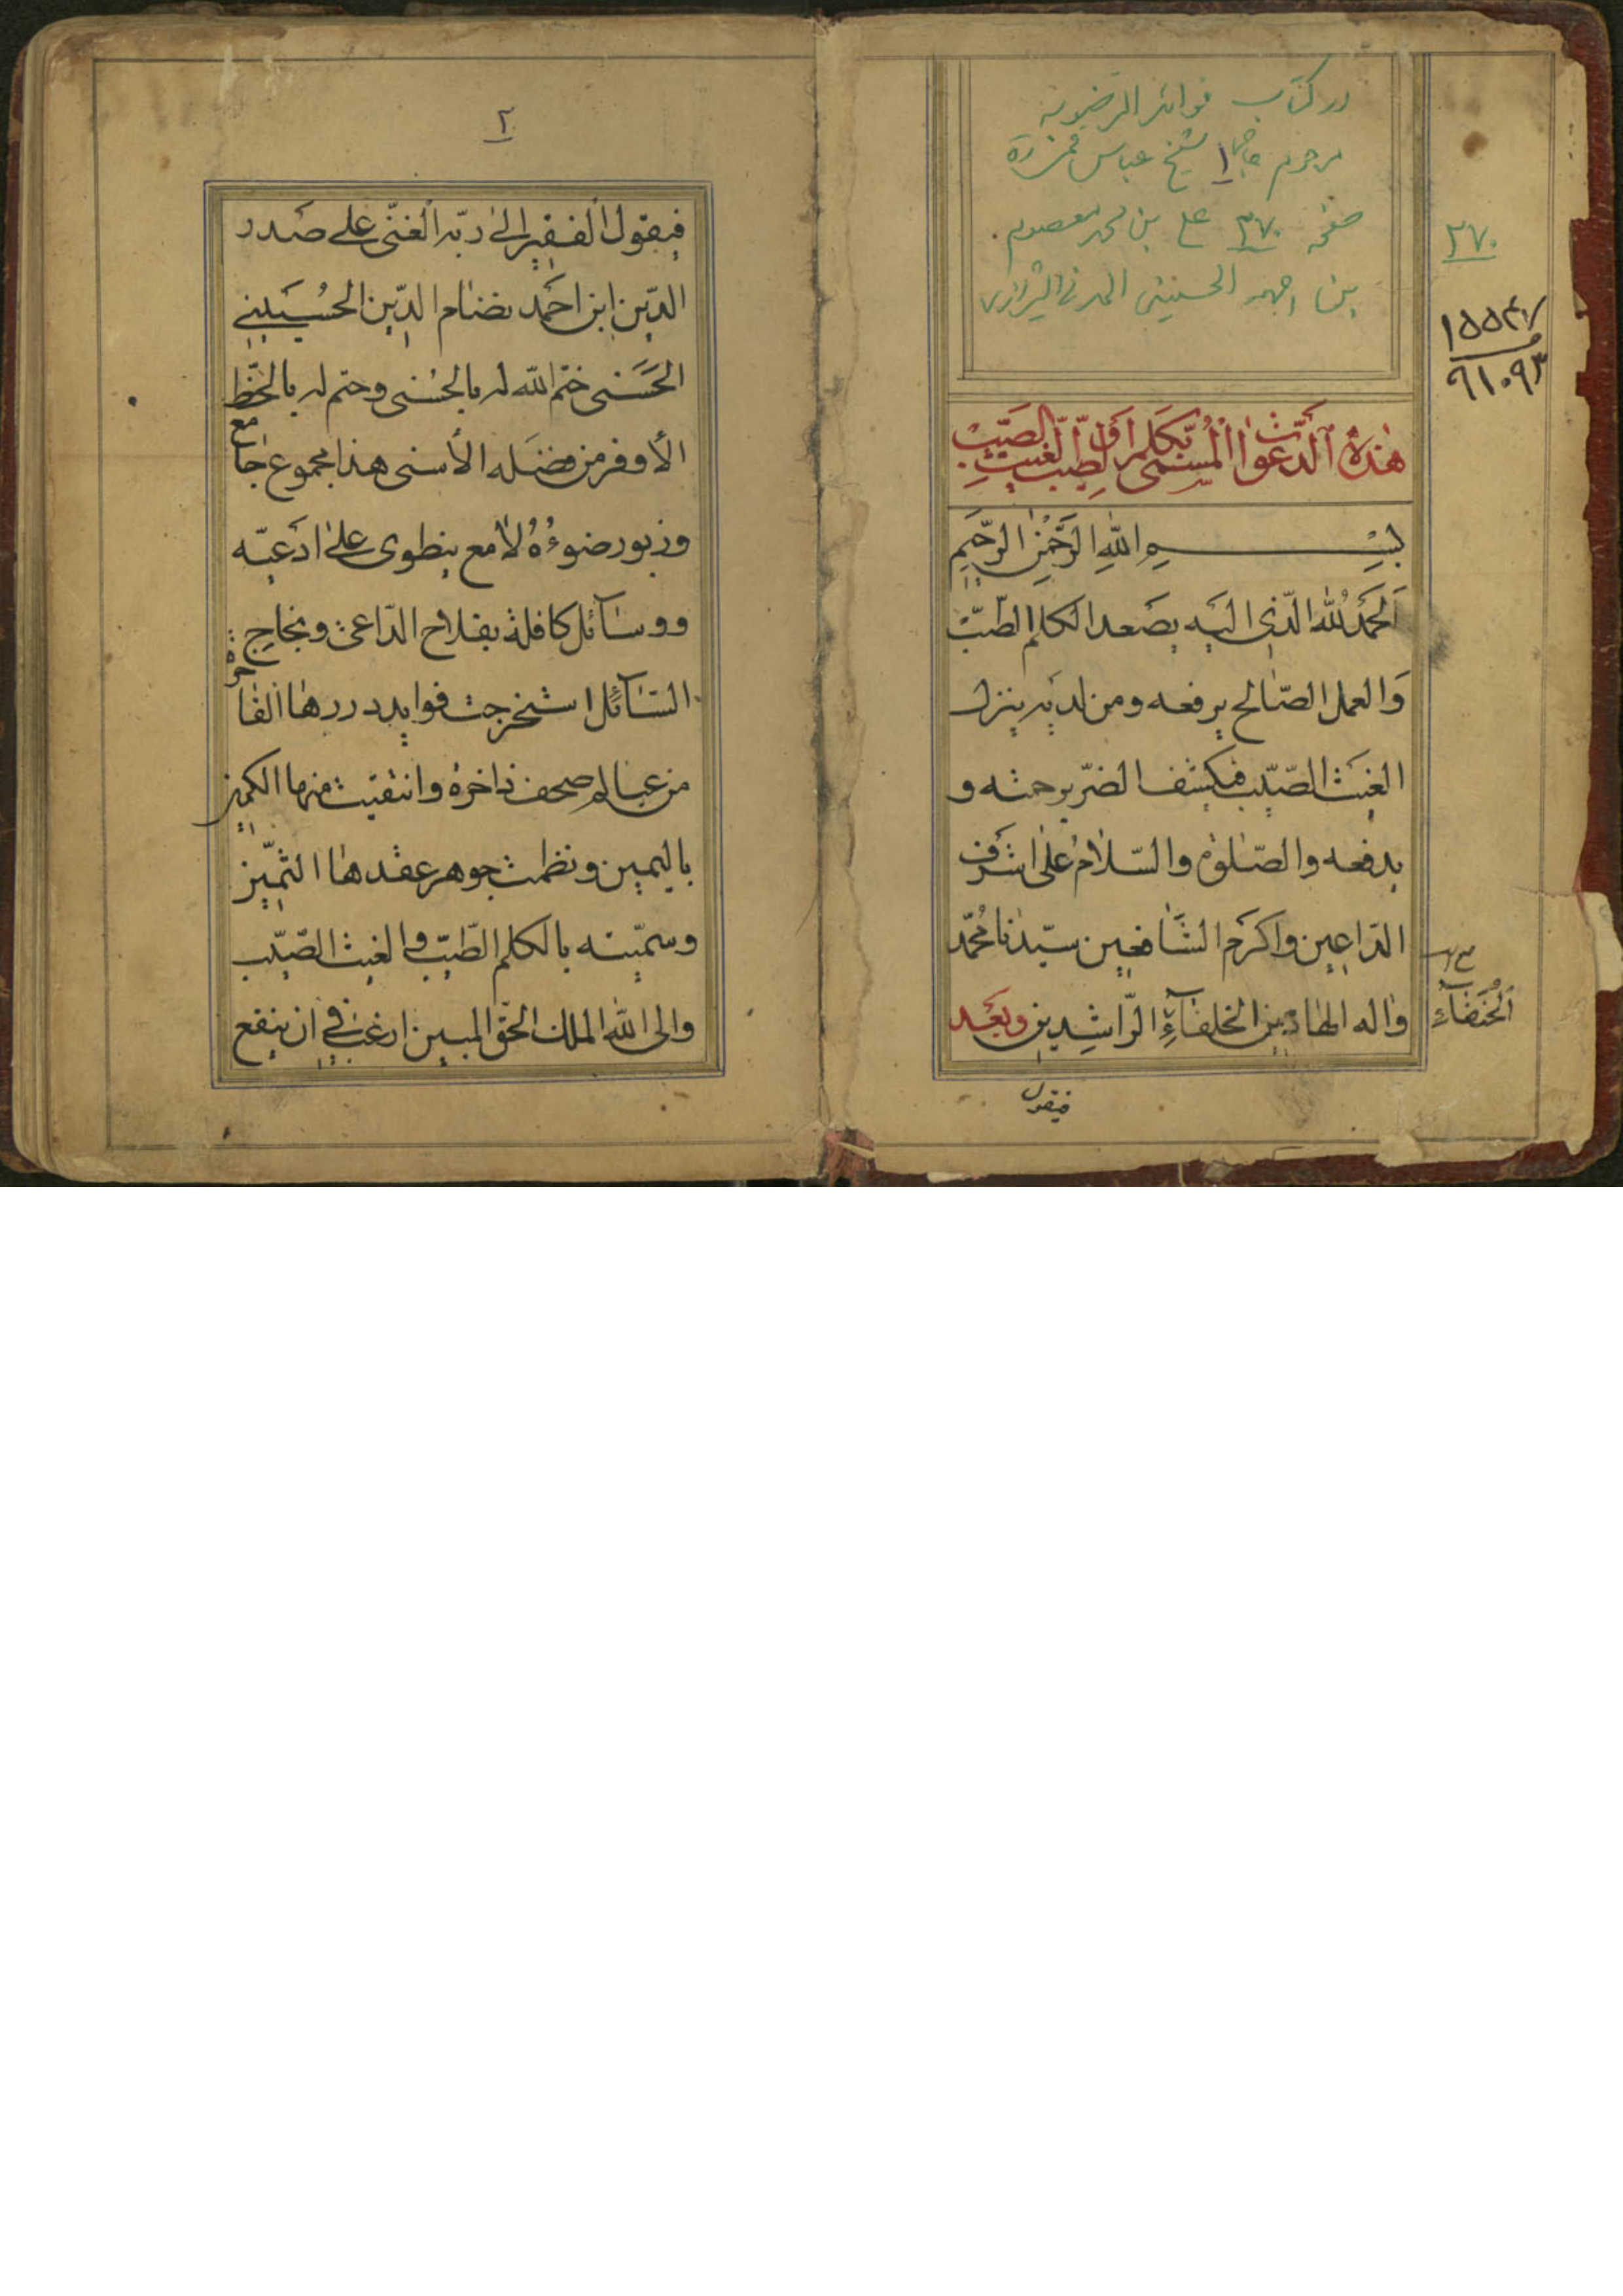 در کتاب فوائد الرضویه
مرحوم حاج شیخ عباس قمی ره
صفحه ٣٧٠ علی بن محمد معصوم
بن احمد الحسینی المدنی الشیرازی
٣٧٠
هٰذِهِ ٱلدَّعَوٰاتُ ٱلْمُسَمّٰى بِكَلِمِ الطَّيِّبِ وَالْغَيْثِ الصَّيِّبِ
بِسْمِ اللّٰهِ الرَّحْمٰنِ الرَّحِيمِ
اَلْحَمْدُ لِلّٰهِ الَّذِي اِلَيْهِ يَصْعَد الكلم الطّيّب
وَالعمل الصّالح يرفعه ومن لديه ينزل
الغيث الصّيّب فيكشف الضرّ برحمته و
يدفعه والصّلوة والسّلام على اشرف
الدّاعين واكرم الشّافعين سيّدنا محمّد
واله الهادين الخلفآء الرّاشدين وبعد
الحُنَفآءِ
فيقول
٢
فيقول الفقير الى ربّه الغنّى على صدر
الدّين ابن احمد نظام الدّين الحُسَيني
الحَسَنى ختم اللّه له بالحُسنى وحتم له بالحظّ
الأوفر من فضله الأسنى هذا مجموع جامع
وزبور ضوءُهُ لامع ينطوى على ادعيّه
ووسآئل كافلة بفلاح الدّاعى ونجاح
السّآئل استخرجت فوايد دررها الفاخرة
من عباب صحف ذاخرة وانتقيت منها الكمين
باليمين ونظمت جوهر عقدها الثّمين
وسمّيته بالكلم الطّيّب والغيث الصّيّب
والى اللّه الملك الحقّ المبين ارغب في ان ينفع